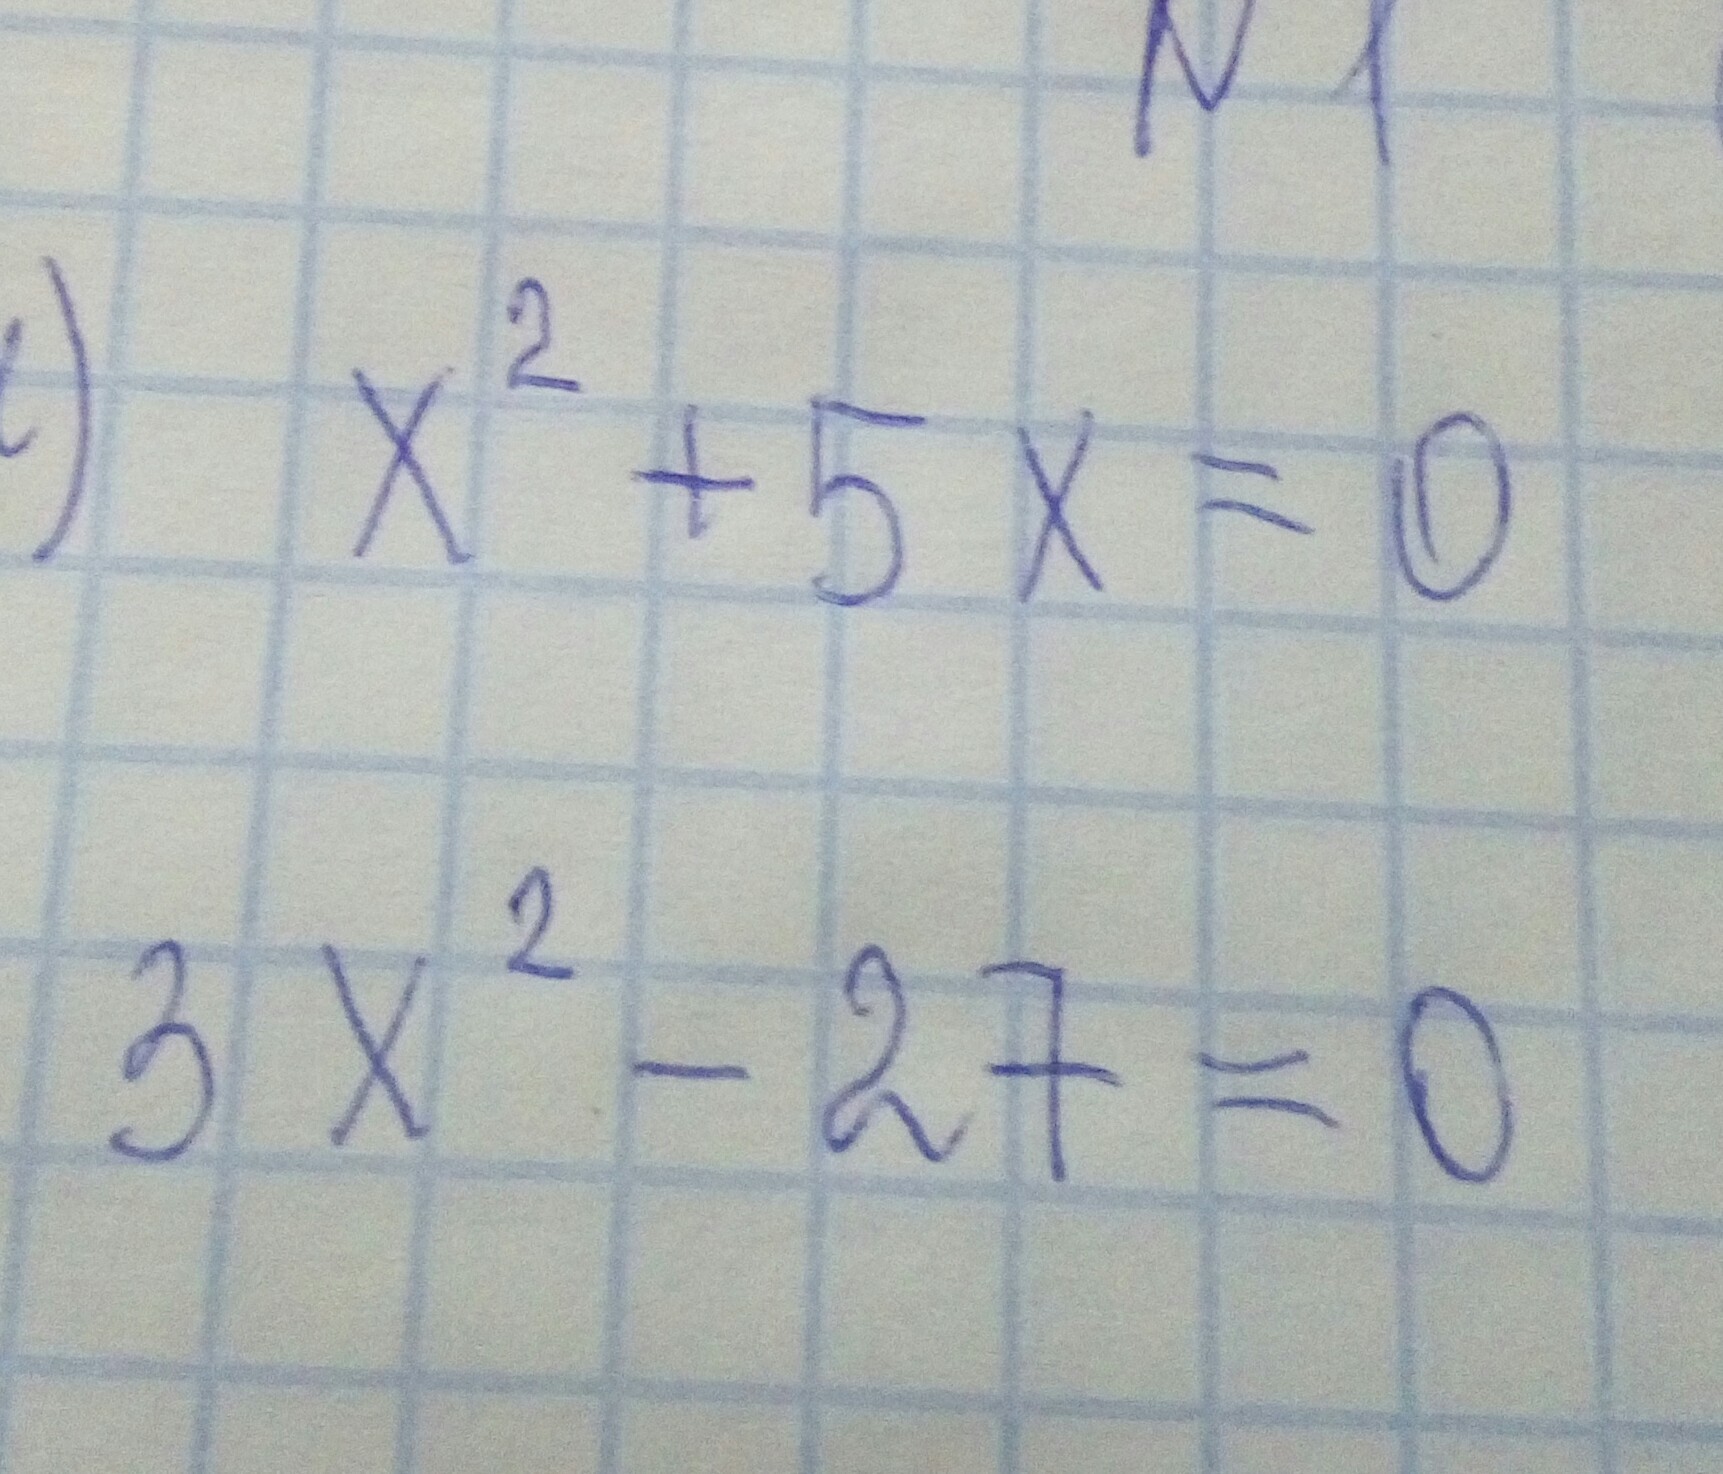 N 1
) x² + 5x = 0
3x² - 27 = 0